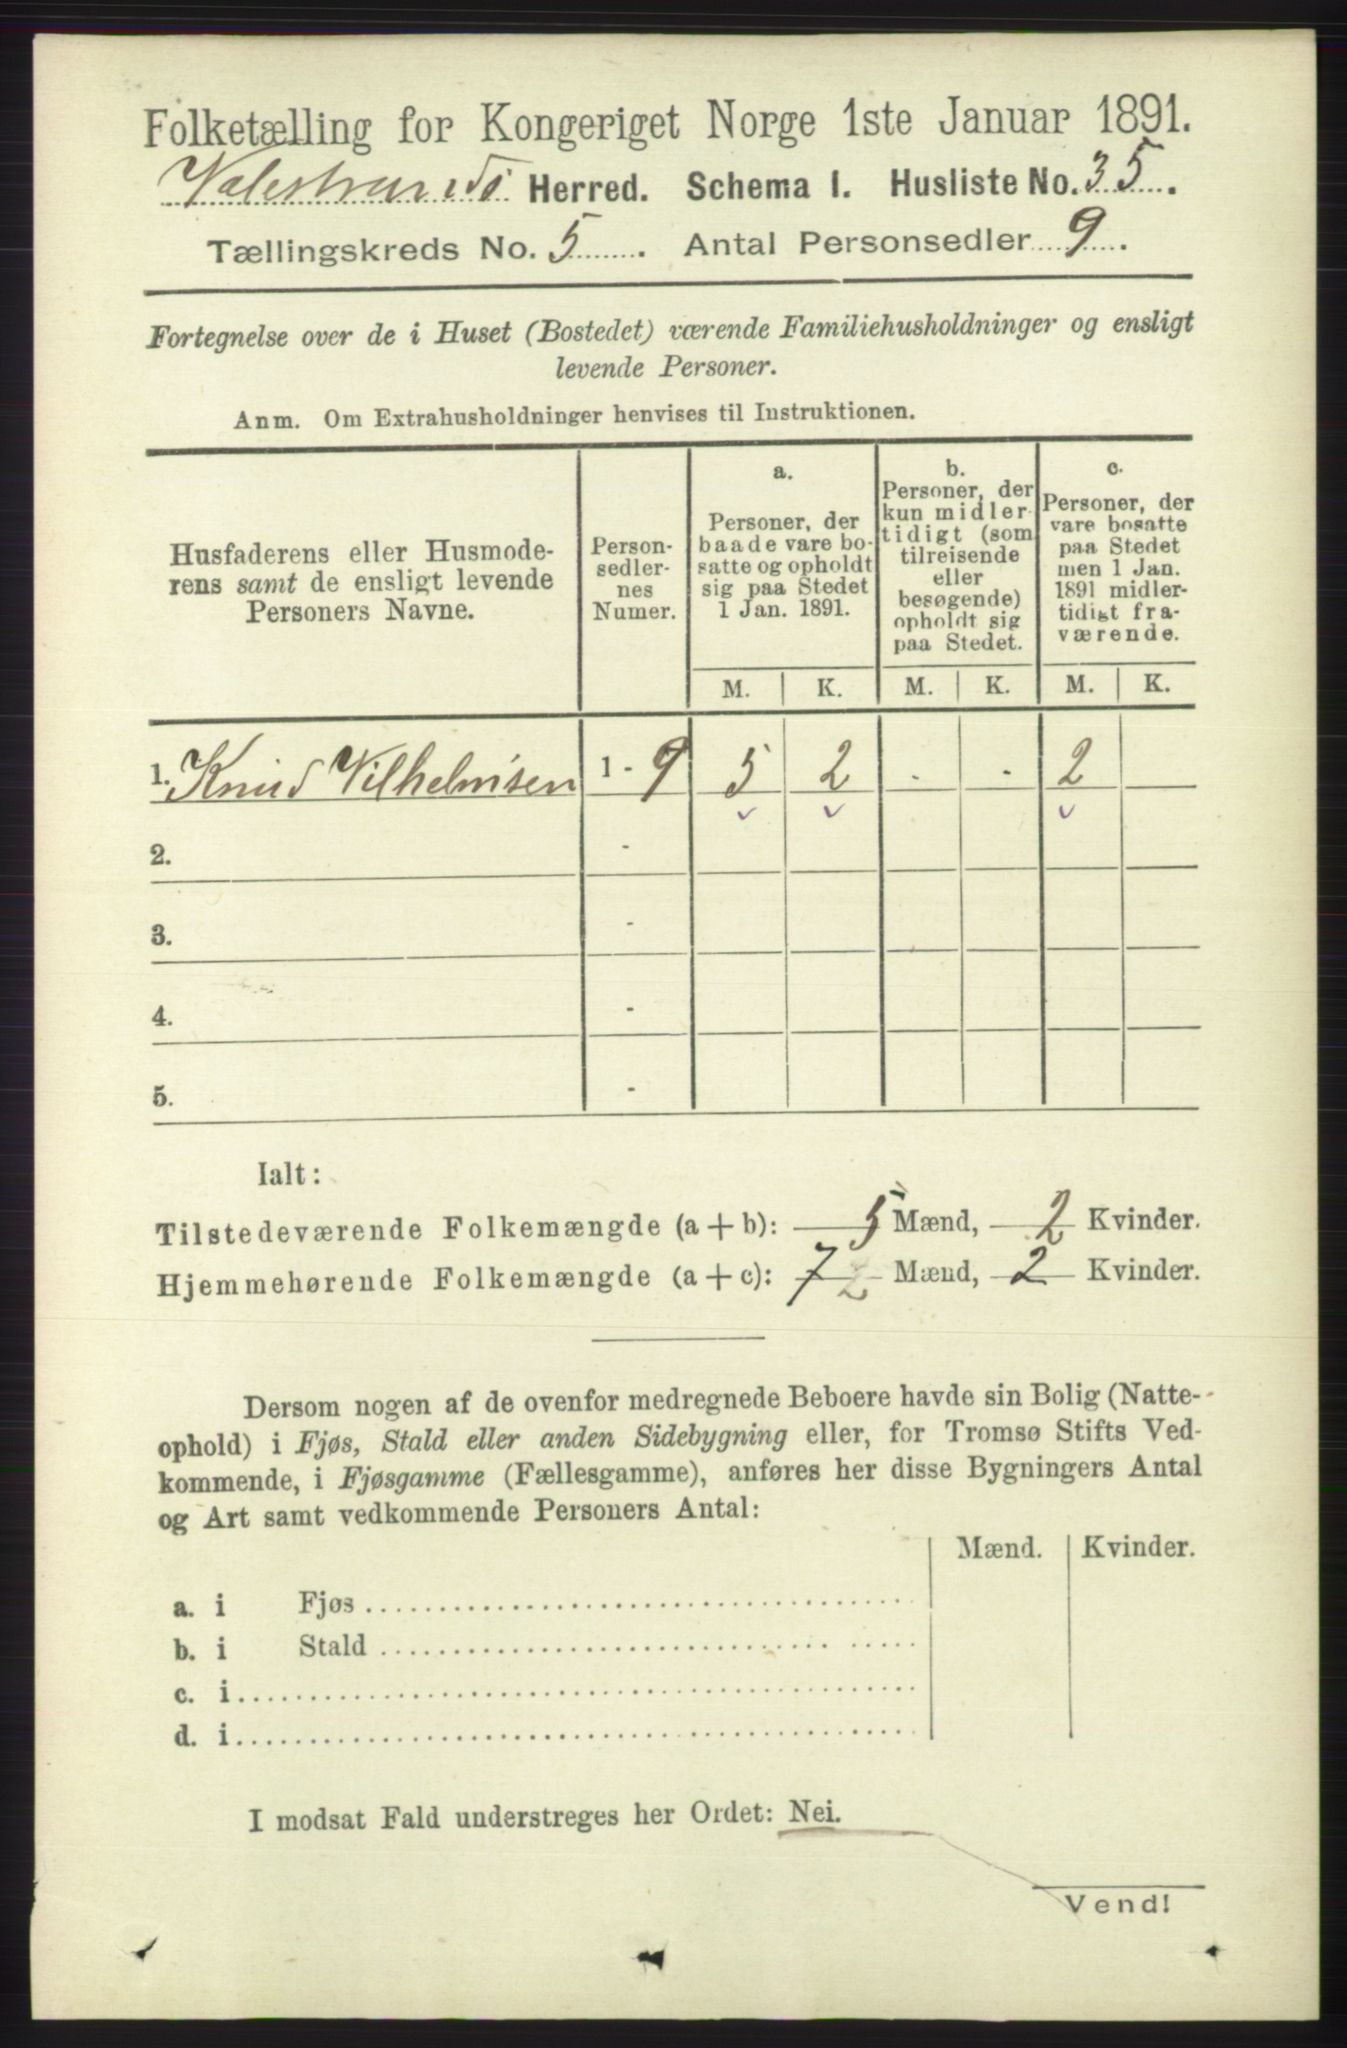 Folketælling for Kongeriget Norge 1ste Januar 1891.
Valestrands Herred. Schema I. Husliste No. 35.
Tællingskreds No. 5. Antal Personsedler 9.
Fortegnelse over de i Huset (Bostedet) værende Familiehusholdninger og ensligt
levende Personer.
Anm. Om Extrahusholdninger henvises til Instruktionen.
Husfaderens eller Husmode-
rens samt de ensligt levende
Personers Navne.
Person-
sedler-
nes
Numer.
a.
Personer, der
baade vare bo-
satte og opholdt
sig paa Stedet
1 Jan. 1891.
b.
Personer, der
kun midler-
tidigt (som
tilreisende
eller
besøgende)
opholdt sig
paa Stedet.
c.
Personer, der
vare bosatte
paa Stedet
men 1 Jan.
1891 midler-
tidigt fra-
værende.
M. K. M. K. M. K.
1. Knud Vilhelmsen 1 - 9 5 2 - - 2
2. -
3. -
4. -
5. -
Ialt:
Tilstedeværende Folkemængde (a + b): 5 Mænd, 2 Kvinder.
Hjemmehørende Folkemængde (a + c): 7 2 Mænd, 2 Kvinder.
Dersom nogen af de ovenfor medregnede Beboere havde sin Bolig (Natte-
ophold) i Fjøs, Stald eller anden Sidebygning eller, for Tromsø Stifts Ved-
kommende, i Fjøsgamme (Fællesgamme), anføres her disse Bygningers Antal
og Art samt vedkommende Personers Antal:
Mænd. Kvinder.
a. i Fjøs
b. i Stald
c. i
d. i
I modsat Fald understreges her Ordet: Nei.
Vend!